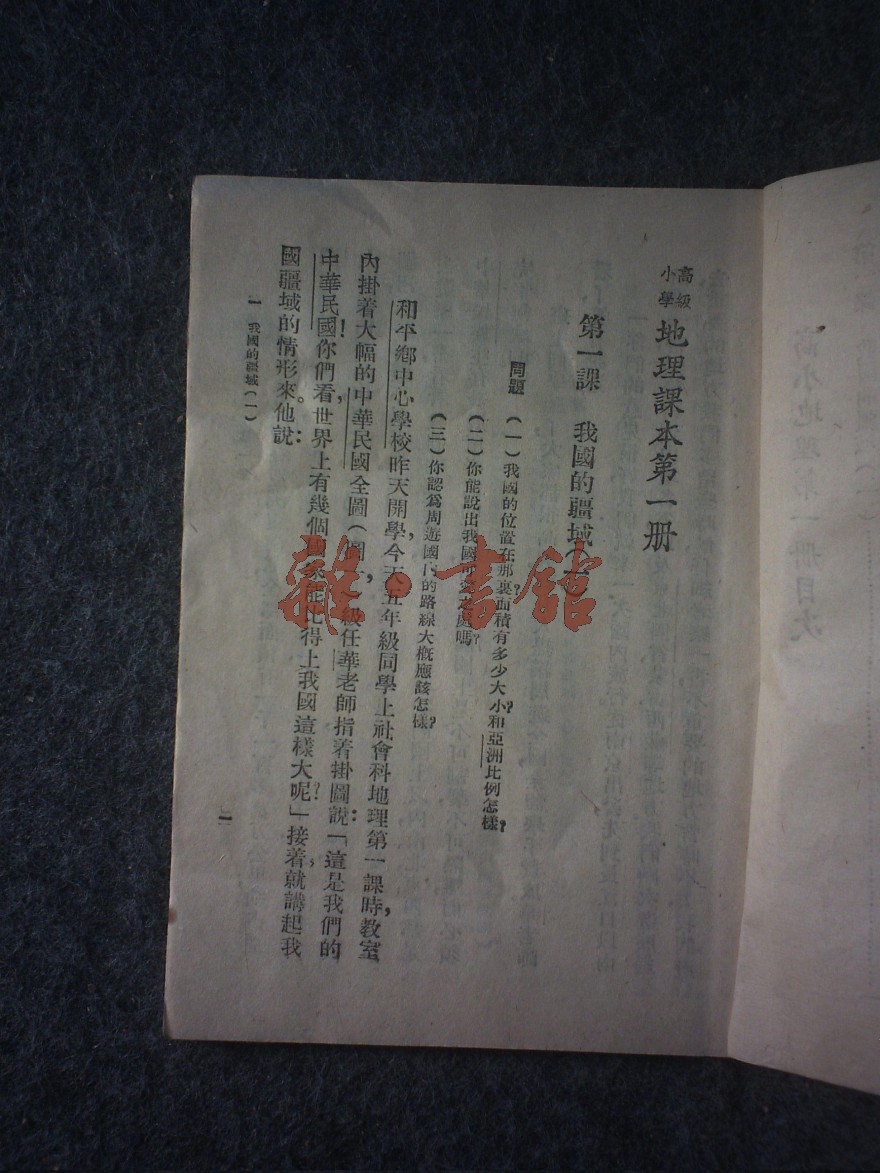 高級小學 地理課本第一册
第一課 我國的疆域(一)
問題 (一)我國的位置在那裏?面積有多少大小?和亞洲比例怎樣?
(二)你能說出我國 嗎?
(三)你認爲周遊國內的路線大概應該怎樣?
和平鄉中心學校昨天開學,今天五年級同學上社會科地理第一課時,教室
內掛着大幅的中華民國全圖(圖一),級任華老師指着掛圖說:「這是我們的
中華民國!你們看,世界上有幾個國家能比得上我國這樣大呢?」接着,就講起我
國疆域的情形來。他說:
一 我國的疆域(一)
一
雜·書館